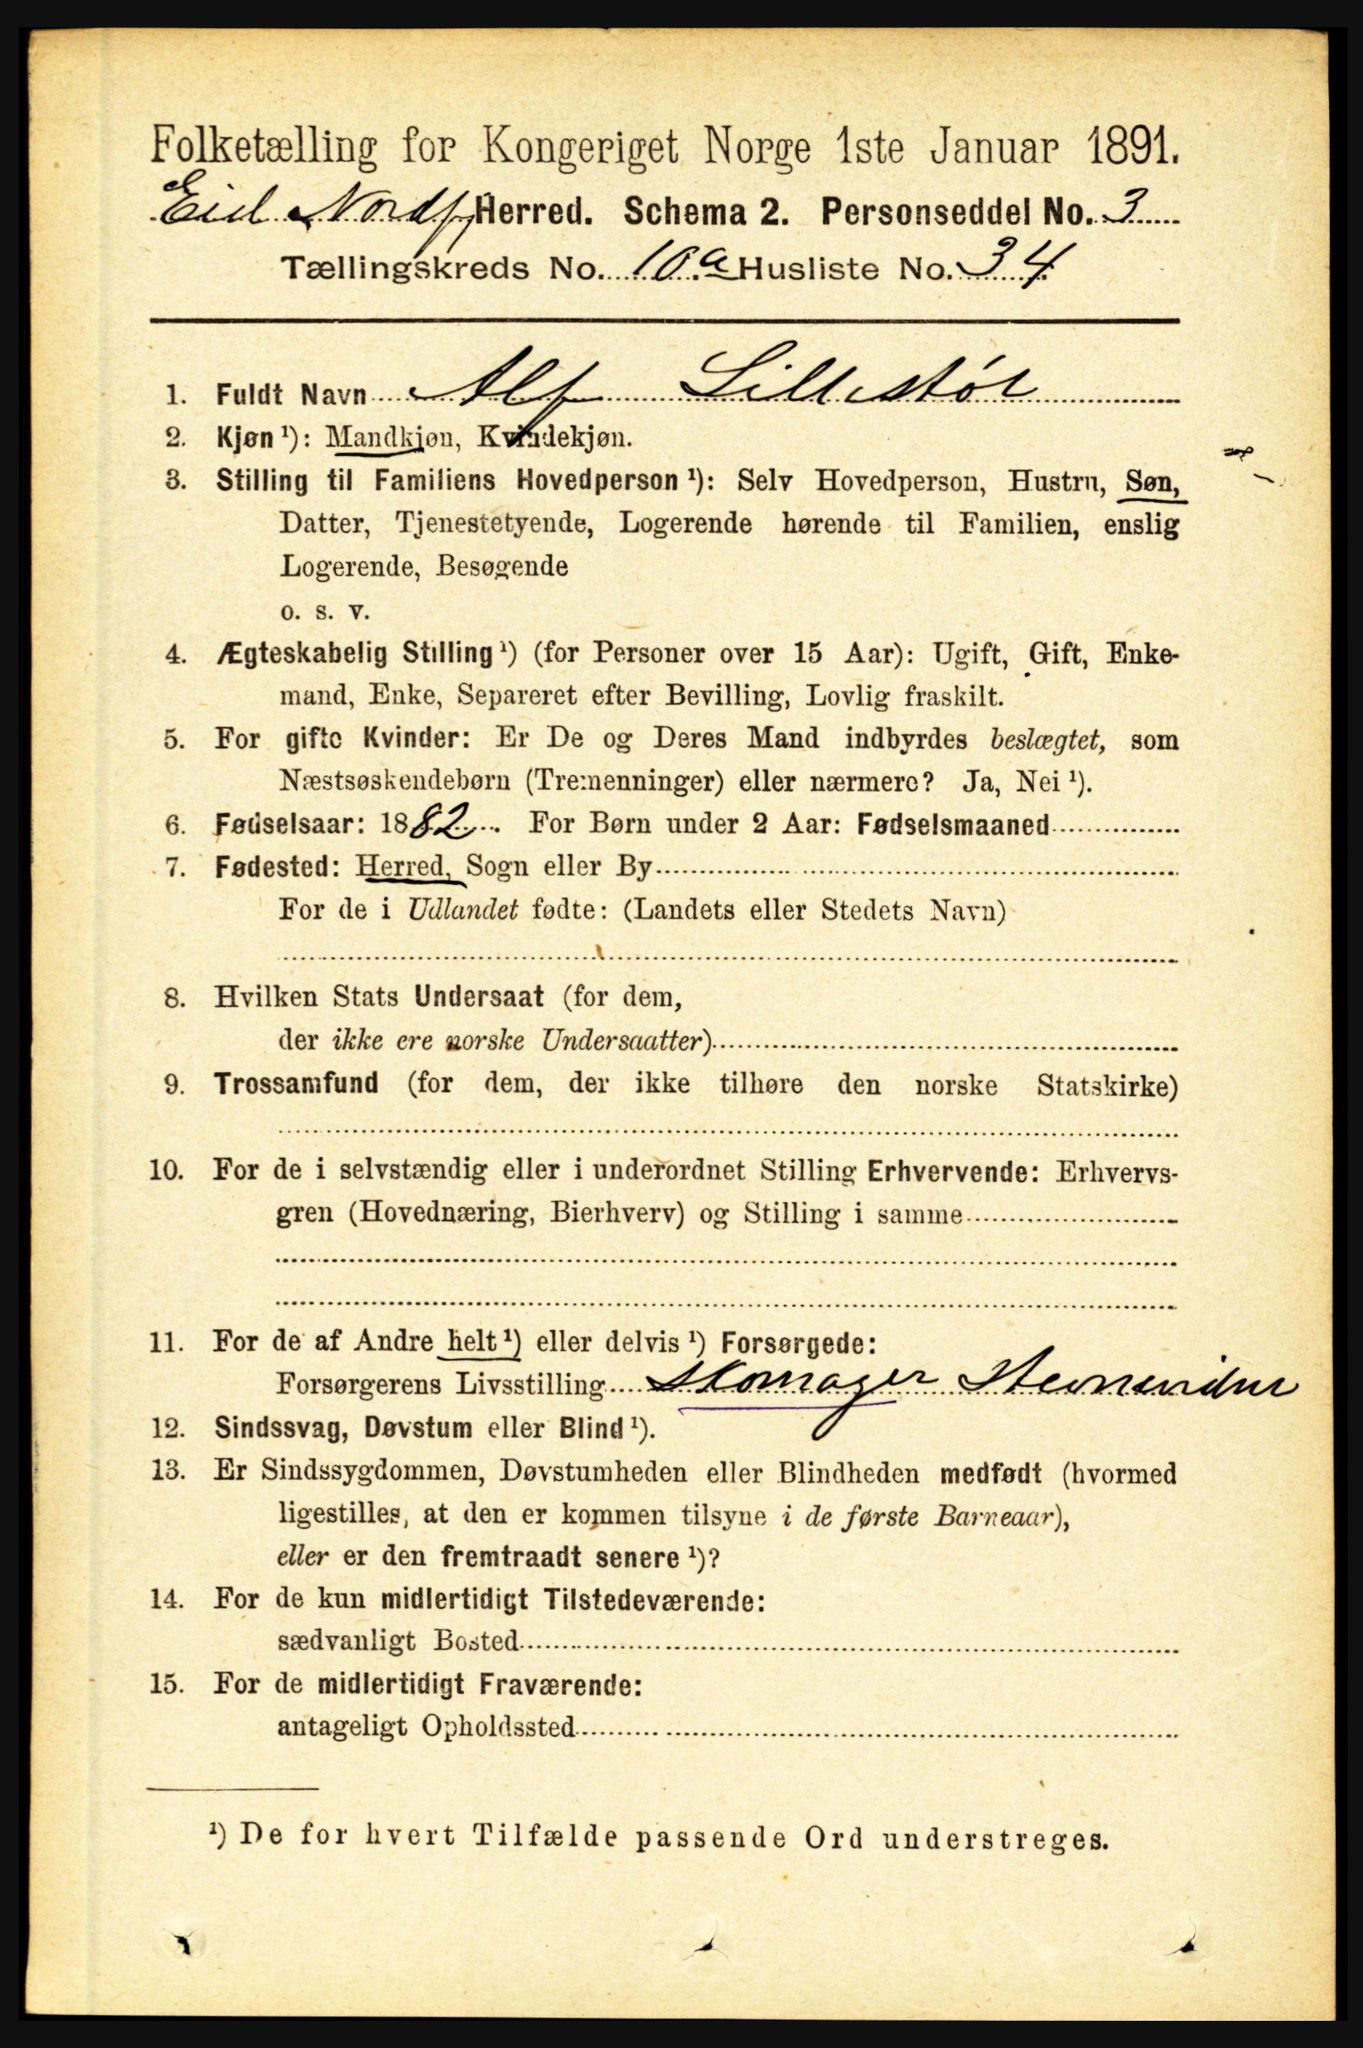 Folketælling for Kongeriget Norge 1ste Januar 1891.
Eid Nordf. Herred. Schema 2. Personseddel No. 3
Tællingskreds No. 10a Husliste No. 34
1. Fuldt Navn Alf Lillestøl
2. Kjøn ¹): Mandkjøn, Kvindekjøn.
3. Stilling til Familiens Hovedperson ¹): Selv Hovedperson, Hustru, Søn,
Datter, Tjenestetyende, Logerende hørende til Familien, enslig
Logerende, Besøgende
o. s. v.
4. Ægteskabelig Stilling ¹) (for Personer over 15 Aar): Ugift, Gift, Enke-
mand, Enke, Separeret efter Bevilling, Lovlig fraskilt.
5. For gifte Kvinder: Er De og Deres Mand indbyrdes beslægtet, som
Næstsøskendebørn (Tremenninger) eller nærmere? Ja, Nei ¹).
6. Fødselsaar: 1882. For Børn under 2 Aar: Fødselsmaaned
7. Fødested: Herred, Sogn eller By
For de i Udlandet fødte: (Landets eller Stedets Navn)
8. Hvilken Stats Undersaat (for dem,
der ikke ere norske Undersaatter)
9. Trossamfund (for dem, der ikke tilhøre den norske Statskirke)
10. For de i selvstændig eller i underordnet Stilling Erhvervende: Erhvervs-
gren (Hovednæring, Bierhverv) og Stilling i samme
11. For de af Andre helt ¹) eller delvis ¹) Forsørgede:
Forsørgerens Livsstilling Skomager
12. Sindssvag, Døvstum eller Blind ¹).
13. Er Sindssygdommen, Døvstumheden eller Blindheden medfødt (hvormed
ligestilles, at den er kommen tilsyne i de første Barneaar),
eller er den fremtraadt senere ¹)?
14. For de kun midlertidigt Tilstedeværende:
sædvanligt Bosted
15. For de midlertidigt Fraværende:
antageligt Opholdssted
¹) De for hvert Tilfælde passende Ord understreges.